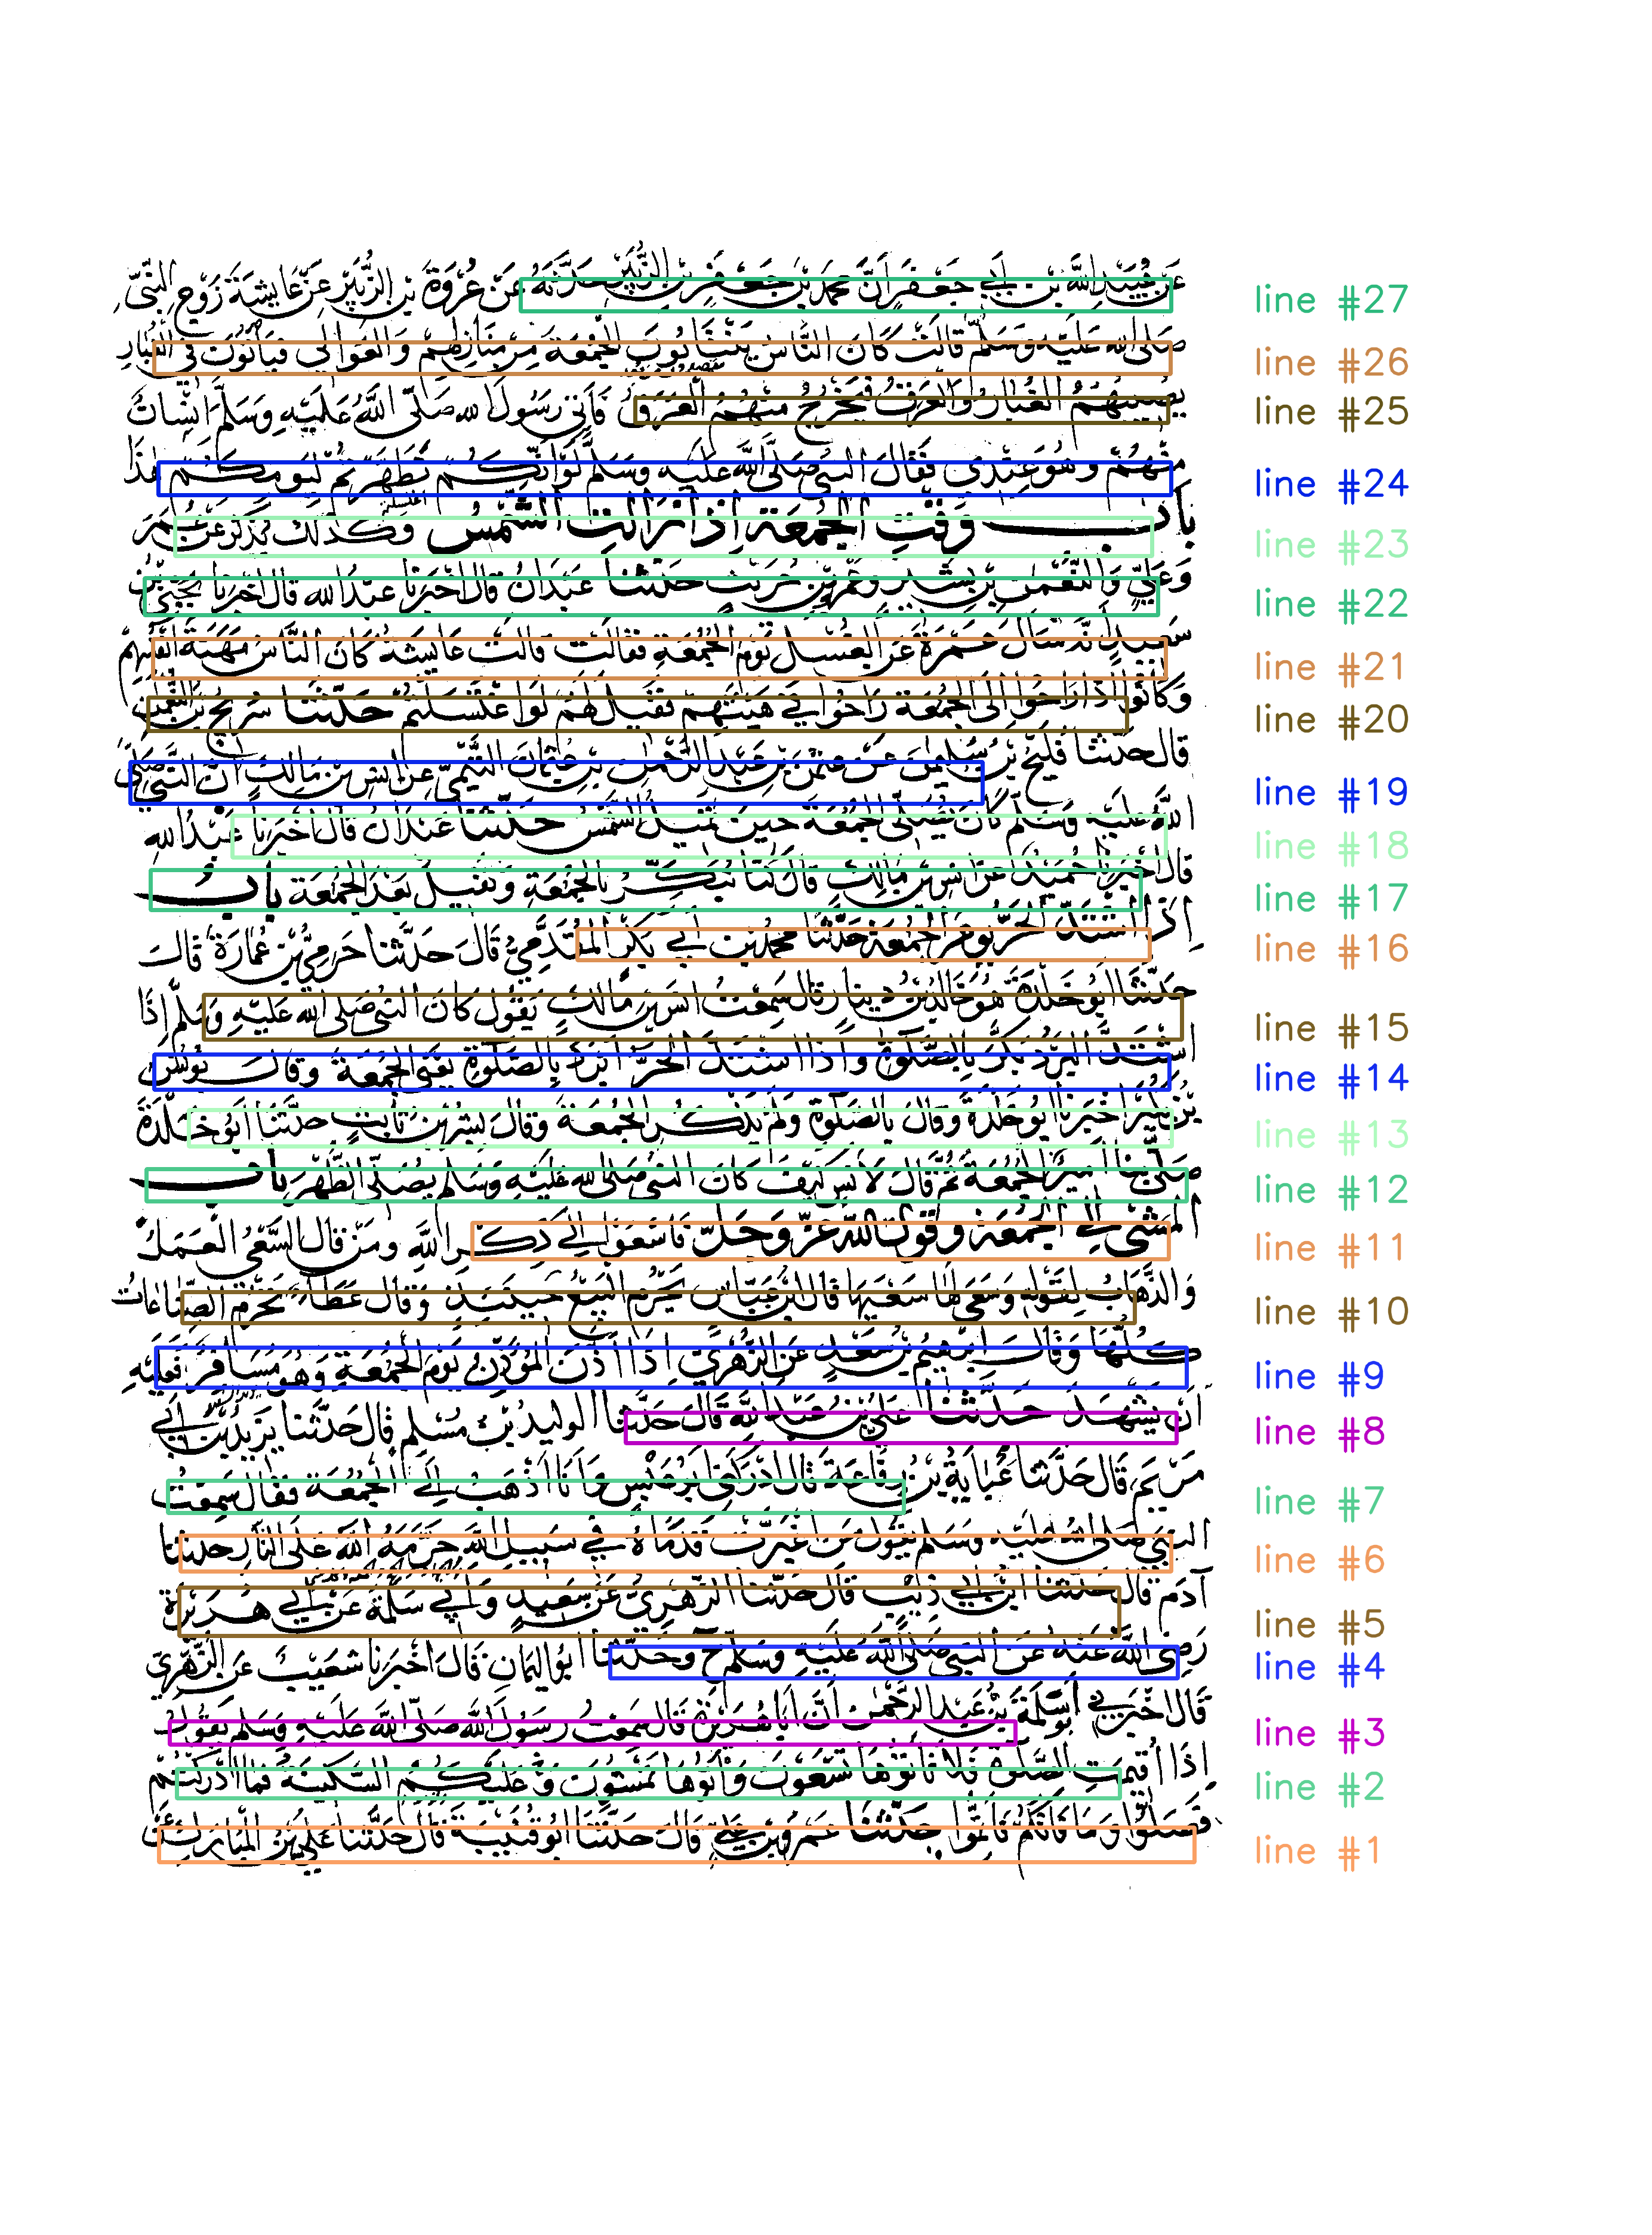 عَن عُبَيْدِ اللَّهِ بن أبي جَعْفَر أنَّ محمد بن جَعْفر بن الزُّبَيْرِ حَدَّثَهُ عَنْ عُرْوَةَ بن الزُّبَيْرِ عَنْ عَايِشَةَ زَوْجِ النَّبِيِّ line #27
صَلى الله عَلَيْهِ وَسَلَّمَ قَالَتْ كَانَ النَّاسُ يَنْتَابُونَ الْجُمُعَةَ مِنْ مَنَازِلِهِمْ وَالعَوَالِي فَيَأْتُونَ فِي الْغُبَارِ line #26
يُصِيبُهُمُ الْغُبَارُ وَالْعَرَقُ فَيَخْرُجُ مِنْهُمُ الْعَرَقُ فَأَتَى رَسُولَ الله صَلَّى اللَّهُ عَلَيْهِ وَسَلَّمَ انْسَانٌ line #25
مِنْهُمْ وَهُوَ عِنْدِي فَقَالَ النبي صَلَّى اللَّه عَلَيْهِ وَسَلَّمَ لَوْ انَّكُمْ تَطَهَّرْتُمْ لِيَوْمِكُمْ هَذَا line #24
بَابُ وَقْتِ الْجُمُعَةِ إِذَا زَالَتِ الشَّمْسُ وَكَذَلِكَ يُذْكَرُ عَنْ عُمَرَ line #23
وَعَلِيٍّ وَالنُّعْمٰنِ بْنِ بَشِيرٍ وَعَمْرِو بْنِ حُرَيْثٍ حَدَّثَنَا عَبْدَانُ قَالَ اخْبَرَنَا عَبْدُ الله قَالَ اخْبَرَنَا يَحْيَى بْنُ line #22
سَعِيدٍ انَّهُ سَأَلَ عَمْرَةَ عَنِ الْغُسْلِ يَوْمَ الْجُمُعَةِ فَقَالَتْ قَالَتْ عَايِشَةُ كَانَ النَّاسُ مَهَنَةَ انْفُسِهِمْ line #21
وَكَانُوا اذَا رَاحُوا إِلَى الْجُمُعَةِ رَاحُوا فِي هَيْئَتِهِمْ فَقِيلَ لَهُمْ لَوِ اغْتَسَلْتُمْ حَدَّثَنَا سُرَيْجُ بْنُ النُّعْمٰنِ line #20
قَالَ حَدَّثَنَا فُلَيْحُ بْنُ سُلَيْمٰنَ عَنْ عُثْمٰنَ بْنِ عَبْدِ الرَّحْمٰنِ بْنِ عُثْمَانَ التَّيْمِيِّ عَنْ انَسِ بْنِ مَالِكٍ انَّ النَّبِيَّ صَلَّى line #19
اللَّهُ عَلَيْهِ وَسَلَّمَ كَانَ يُصَلِّي الْجُمُعَةَ حِينَ تَمِيلُ الشَّمْسُ حَدَّثَنَا عَبْدَانُ قَالَ اخْبَرَنَا عَبْدُ اللهِ line #18
قَالَ اخْبَرَنَا حُمَيْدٌ عَنْ انَسِ بْنِ مَالِكٍ قَالَ كُنَّا نُبَكِّرُ بِالْجُمُعَةِ وَنَقِيلُ بَعْدَ الْجُمُعَةِ بَابُ line #17
إِذَا اشْتَدَّ الْحَرُّ يَوْمَ الْجُمُعَةِ حَدَّثَنَا محمد بن أَبِي بَكْرٍ الْمُقَدَّمِيُّ قَالَ حَدَّثَنَا حَرَمِيُّ بْنُ عُمَارَةَ قَالَ line #16
حَدَّثَنَا ابُو خَلْدَةَ هُوَ خَالِدُ بْنُ دِينَارٍ قَالَ سَمِعْتُ انَسَ بْنَ مَالِكٍ يَقُولُ كَانَ النَّبِيُّ صَلَّى الله عَلَيْهِ وَسَلَّمَ إِذَا line #15
اشْتَدَّ الْبَرْدُ بَكَّرَ بِالصَّلَوةِ وَاذَا اشْتَدَّ الْحَرُّ ابْرَدَ بِالصَّلَوةِ يَعْنِي الْجُمُعَةَ وَقَالَ يُونُسُ line #14
بْنُ بُكَيْرٍ اخْبَرَنَا ابُو خَلْدَةَ وَقَالَ بِالصَّلَوةِ وَلَمْ يَذْكُرِ الْجُمُعَةَ وَقَالَ بِشْرُ بْنُ ثَابِتٍ حَدَّثَنَا ابُو خَلْدَةَ line #13
صَلَّى بِنَا امِيرٌ الْجُمُعَةَ ثُمَّ قَالَ لِانَسٍ كَيْفَ كَانَ النَّبِيُّ صَلَّى الله عَلَيْهِ وَسَلَّمَ يُصَلِّي الظُّهْرَ بَابُ line #12
الْمَشْيِ إِلَى الْجُمُعَةِ وَقَوْلِ اللَّهِ عَزَّ وَجَلَّ فَاسْعَوْا إِلَى ذِكْرِ اللَّهِ وَمَنْ قَالَ السَّعْيُ الْعَمَلُ line #11
وَالذَّهَابُ لِقَوْلِهِ وَسَعَى لَهَا سَعْيَهَا قَالَ ابْنُ عَبَّاسٍ يَحْرُمُ الْبَيْعُ حِينَئِذٍ وَقَالَ عَطَاءٌ تَحْرُمُ الصِّنَاعَاتُ line #10
كُلُّهَا وَقَالَ ابْرٰهِيمُ بْنُ سَعْدٍ عَنِ الزُّهْرِيِّ اذَا اذَّنَ الْمُؤَذِّنُ يَوْمَ الْجُمُعَةِ وَهُوَ مُسَافِرٌ فَعَلَيْهِ line #9
انْ يَشْهَدَ حَدَّثَنَا عَلِيُّ بْنُ عَبْدِ اللَّهِ قَالَ حَدَّثَنَا الْوَلِيدُ بْنُ مُسْلِمٍ قَالَ حَدَّثَنَا يَزِيدُ بْنُ أَبِي line #8
مَرْيَمَ قَالَ حَدَّثَنَا عَبَايَةُ بْنُ رِفَاعَةَ قَالَ ادْرَكَنِي ابُو عَبْسٍ وَانَا اذْهَبُ إِلَى الْجُمُعَةِ فَقَالَ سَمِعْتُ line #7
النَّبِيَّ صَلَّى الله عَلَيْهِ وَسَلَّمَ يَقُولُ مَنِ اغْبَرَّتْ قَدَمَاهُ فِي سَبِيلِ اللَّهِ حَرَّمَهُ اللَّهُ عَلَى النَّارِ حَدَّثَنَا line #6
آدَمُ قَالَ حَدَّثَنَا ابْنُ أَبِي ذِئْبٍ قَالَ حَدَّثَنَا الزُّهْرِيُّ عَنْ سَعِيدٍ وَأَبِي سَلَمَةَ عَنْ أَبِي هُرَيْرَةَ line #5
رَضِيَ اللَّهُ عَنْهُ عَنِ النَّبِيِّ صَلَّى اللَّهُ عَلَيْهِ وَسَلَّمَ ح وَحَدَّثَنَا ابُو الْيَمَانِ قَالَ اخْبَرَنَا شُعَيْبٌ عَنِ الزُّهْرِيِّ line #4
قَالَ اخْبَرَنِي ابُو سَلَمَةَ بْنُ عَبْدِ الرَّحْمٰنِ انَّ ابَا هُرَيْرَةَ قَالَ سَمِعْتُ رَسُولَ اللَّهِ صَلَّى اللَّهُ عَلَيْهِ وَسَلَّمَ يَقُولُ line #3
إِذَا اُقِيمَتِ الصَّلَوةُ فَلَا تَأْتُوهَا تَسْعَوْنَ وَأْتُوهَا تَمْشُونَ وَعَلَيْكُمُ السَّكِينَةُ فَمَا ادْرَكْتُمْ line #2
فَصَلُّوا وَمَا فَاتَكُمْ فَأَتِمُّوا حَدَّثَنَا عَمْرُو بْنُ عَلِيٍّ قَالَ حَدَّثَنَا ابُو قُتَيْبَةَ قَالَ حَدَّثَنَا عَلِيُّ بْنُ الْمُبَارَكِ عَنْ line #1